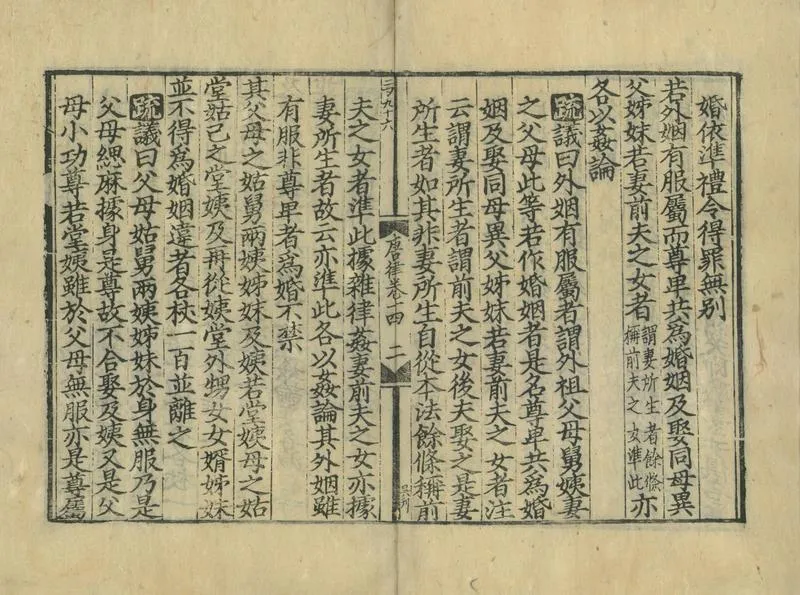 婚依準禮令得罪無別
若外姻有服屬而尊卑共爲婚姻及娶同母異
父姊妹若妻前夫之女者謂妻所生者餘條稱前夫之女準此亦
各以姦論
疏議曰外姻有服屬者謂外祖父母舅姨妻
之父母此等若作婚姻者是名尊卑共爲婚
姻及娶同母異父姊妹若妻前夫之女者注
云謂妻所生者謂前夫之女後夫娶之是妻
所生者如其非妻所生自從本法餘條稱前
唐律卷十四 二
夫之女者準此據雜律姦妻前夫之女亦據
妻所生者故云亦準此各以姦論其外姻雖
有服非尊卑者爲婚不禁
其父母之姑舅兩姨姊妹及姨若堂姨母之姑
堂姑己之堂姨及再從姨堂外甥女女婿姊妹
並不得爲婚姻違者各杖一百並離之
疏議曰父母姑舅兩姨姊妹於身無服乃是
父母緦麻據身是尊故不合娶及姨又是父
母小功尊若堂姨雖於父母無服亦是尊屬